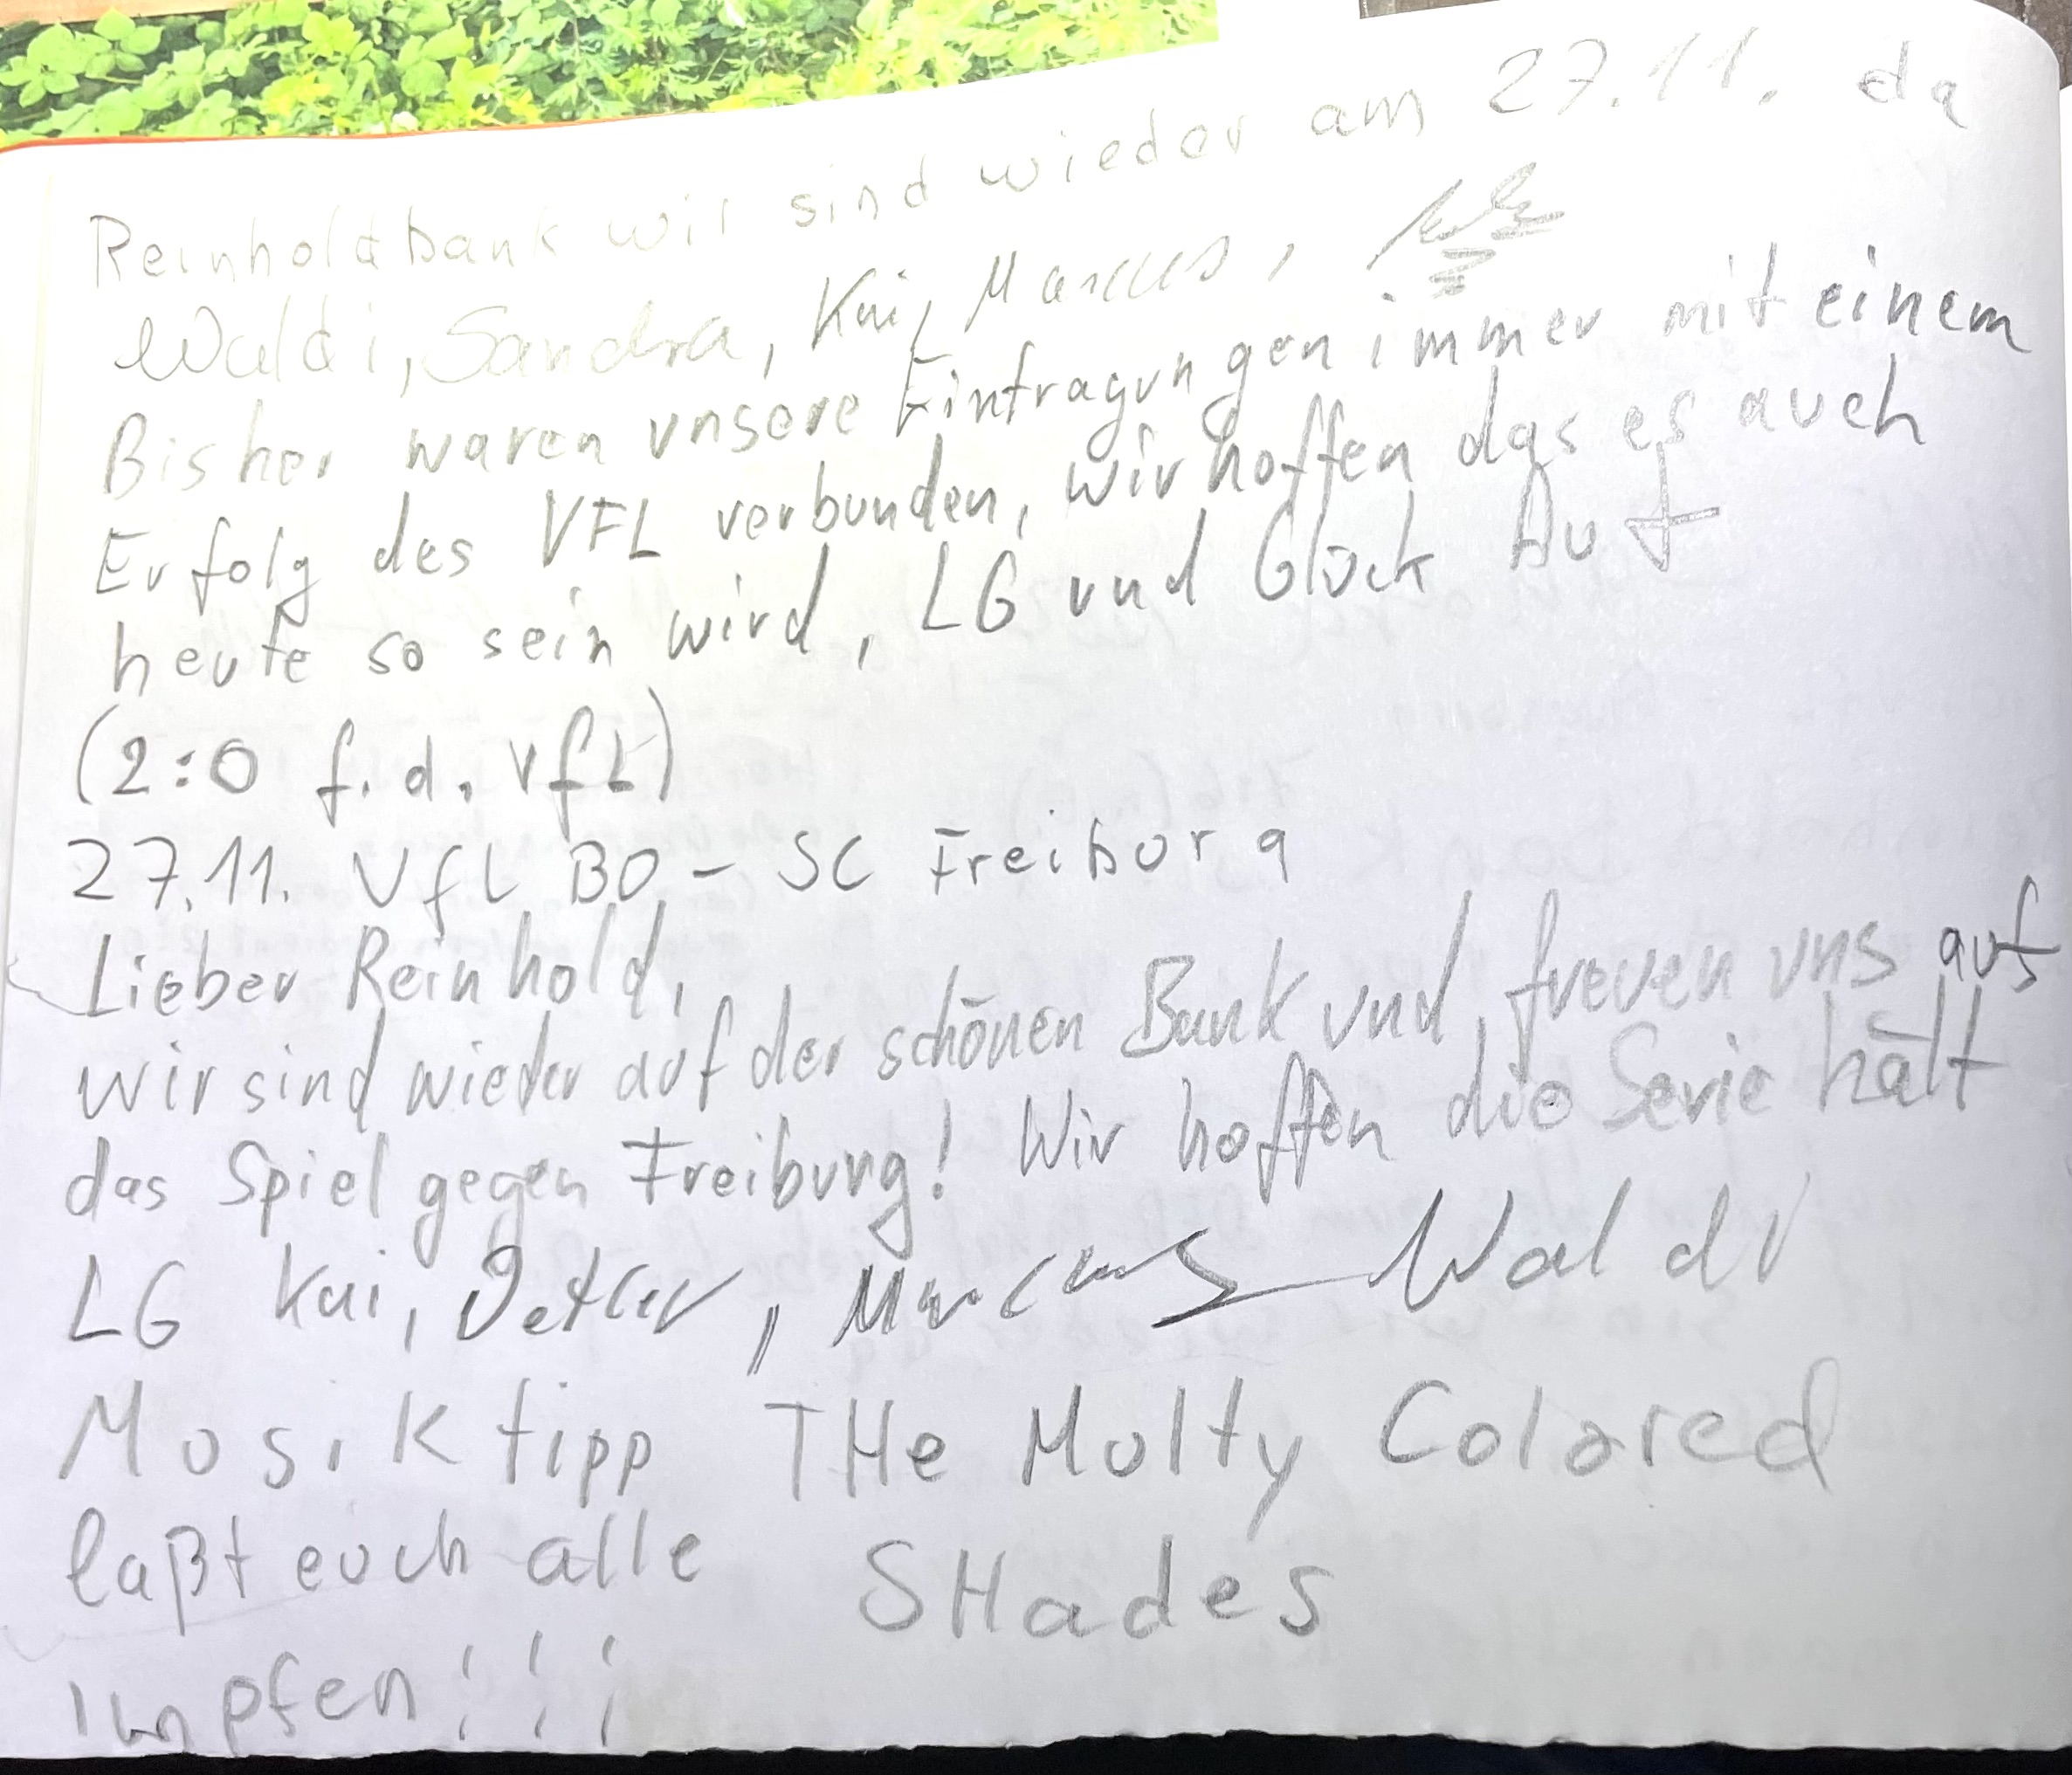 Reinholdbank wir sind wieder am 27.11. da
Waldi, Sandra, Kai, Marcus,
Bisher waren unsere Eintragungen immer mit einem
Erfolg des VFL verbunden, wir hoffen das es auch
heute so sein wird, LG und Glück Auf
(2:0 f.d. VfL)
27.11. VfL BO - SC Freiburg
Lieber Reinhold,
wir sind wieder auf der schönen Bank und freuen uns auf
das Spiel gegen Freiburg! Wir hoffen die Serie hält
LG Kai, Detlev, Marcus Waldi
Musiktipp THe Multy Colored
SHades
laßt euch alle
impfen!!!